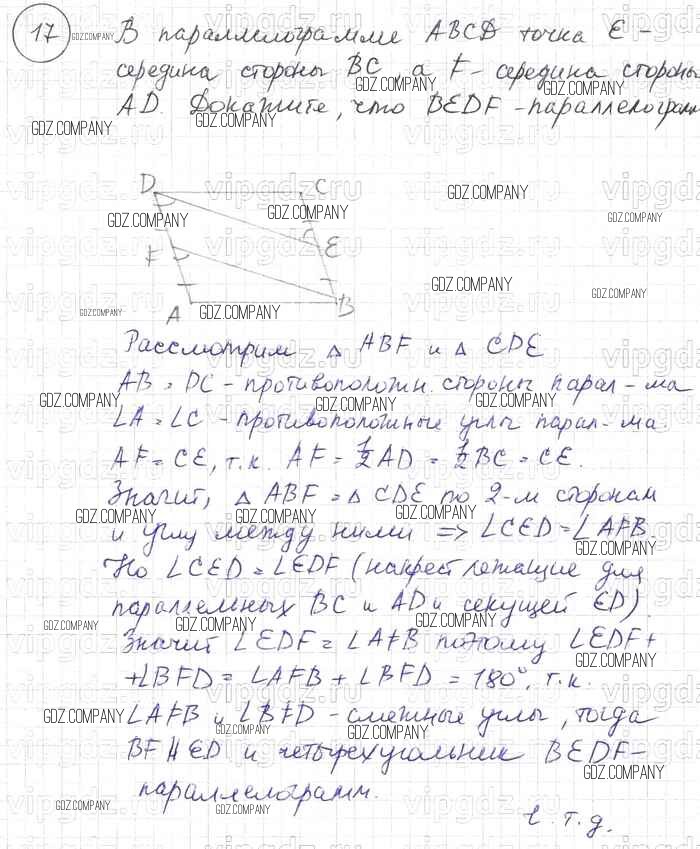 17 В параллелограмме ABCD точка E -
середина стороны BC, а F - середина стороны
AD. Докажите, что BEDF - параллелограмм
D C
F E
A B
Рассмотрим △ ABF и △ CDE
AB = DC - противоположн. стороны парал-ма
∠A = ∠C - противоположные углы парал-ма.
AF = CE, т.к. AF = 1/2 AD = 1/2 BC = CE.
Значит, △ ABF = △ CDE по 2-м сторонам
и углу между ними => ∠CED = ∠AFB.
Но ∠CED = ∠EDF (накрест лежащие для
параллельных BC и AD и секущей ED)
Значит ∠EDF = ∠AFB поэтому ∠EDF +
+∠BFD = ∠AFB + ∠BFD = 180°, т.к.
∠AFB и ∠BFD - смежные углы, тогда
BF || ED и четырехугольник BEDF -
параллелограмм.
ч.т.д.
GDZ.COMPANY
vipgdz.ru